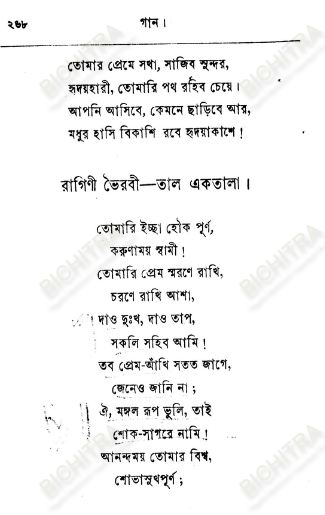 ২৬৮
গান।
তোমার প্রেমে সখা, সাজিব সুন্দর,
হৃদয়হারী, তোমারি পথ রহিব চেয়ে।
আপনি আসিবে, কেমনে ছাড়িবে আর,
মধুর হাসি বিকাশি রবে হৃদয়াকাশে!
রাগিণী ভৈরবী—তাল একতালা।
তোমারি ইচ্ছা হৌক পূর্ণ,
করুণাময় স্বামী!
তোমারি প্রেম স্মরণে রাখি,
চরণে রাখি আশা,
দাও দুঃখ, দাও তাপ,
সকলি সহিব আমি!
তব প্রেম-আঁখি সতত জাগে,
জেনেও জানি না;
ঐ, মঙ্গল রূপ ভুলি, তাই
শোক-সাগরে নামি!
আনন্দময় তোমার বিশ্ব,
শোভাসুখপূর্ণ;
BICHITRA
BICHITRA
BICHITRA
BICHITRA
BICHITRA
BICHITRA